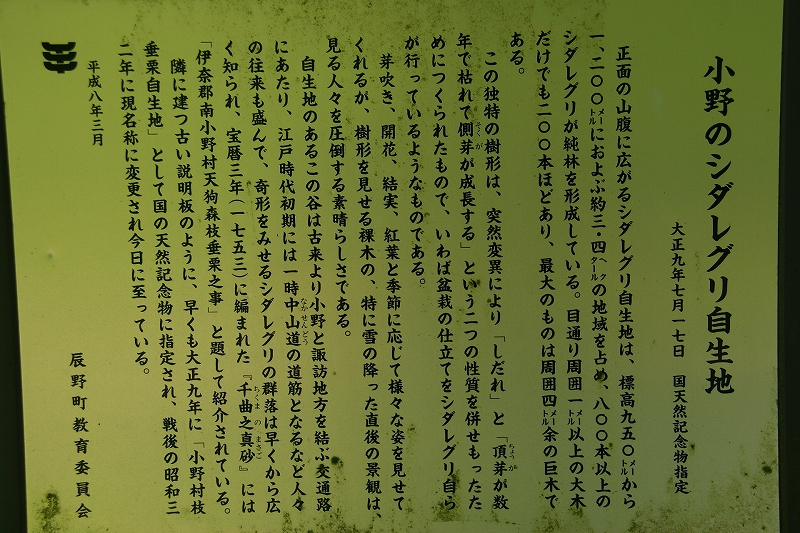 小野のシダレグリ自生地
大正九年七月一七日　国天然記念物指定
正面の山腹に広がるシダレグリ自生地は、標高九五〇メートルから
一、二〇〇メートルにおよぶ約三・四ヘクタールの地域を占め、八〇〇本以上の
シダレグリが純林を形成している。目通り周囲一メートル以上の大木
だけでも二〇〇本ほどあり、最大のものは周囲四メートル余の巨木で
ある。
この独特の樹形は、突然変異により「しだれ」と「頂芽が数
年で枯れて側芽が成長する」という二つの性質を併せもったた
めにつくられたもので、いわば盆栽の仕立てをシダレグリ自ら
が行っているようなものである。
芽吹き、開花、結実、紅葉と季節に応じて様々な姿を見せて
くれるが、樹形を見せる裸木の、特に雪の降った直後の景観は、
見る人々を圧倒する素晴らしさである。
自生地のあるこの谷は古来より小野と諏訪地方を結ぶ交通路
にあたり、江戸時代初期には一時中山道の道筋となるなど人々
の往来も盛んで、奇形をみせるシダレグリの群落は早くから広
く知られ、宝暦三年（一七五三）に編まれた『千曲之真砂』には
「伊奈郡南小野村天狗森枝垂栗之事」と題して紹介されている。
隣に建つ古い説明板のように、早くも大正九年に「小野村枝
垂栗自生地」として国の天然記念物に指定され、戦後の昭和三
二年に現名称に変更され今日に至っている。
平成八年三月
辰野町教育委員会